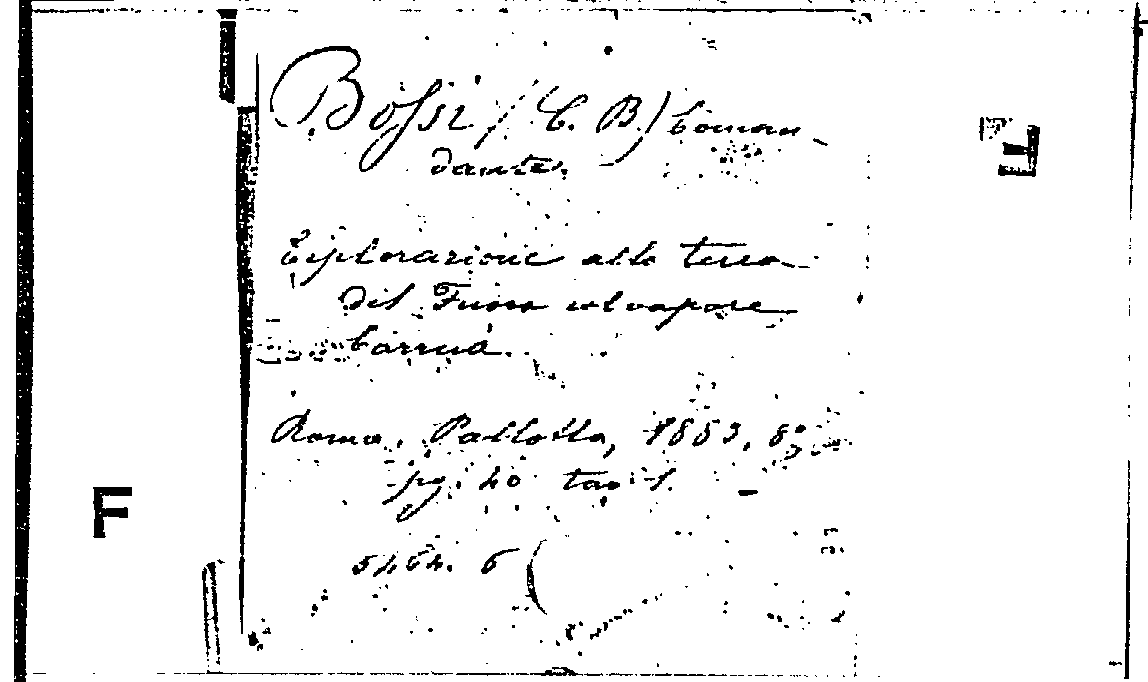 Bossi (C. B.) Coman-
dante.
Esplorazione alla terra
del Fuoco col vapore
Carruà.
Roma, Pallotta, 1883, 8°
pg. 40 tav 1.
5464. 6
F